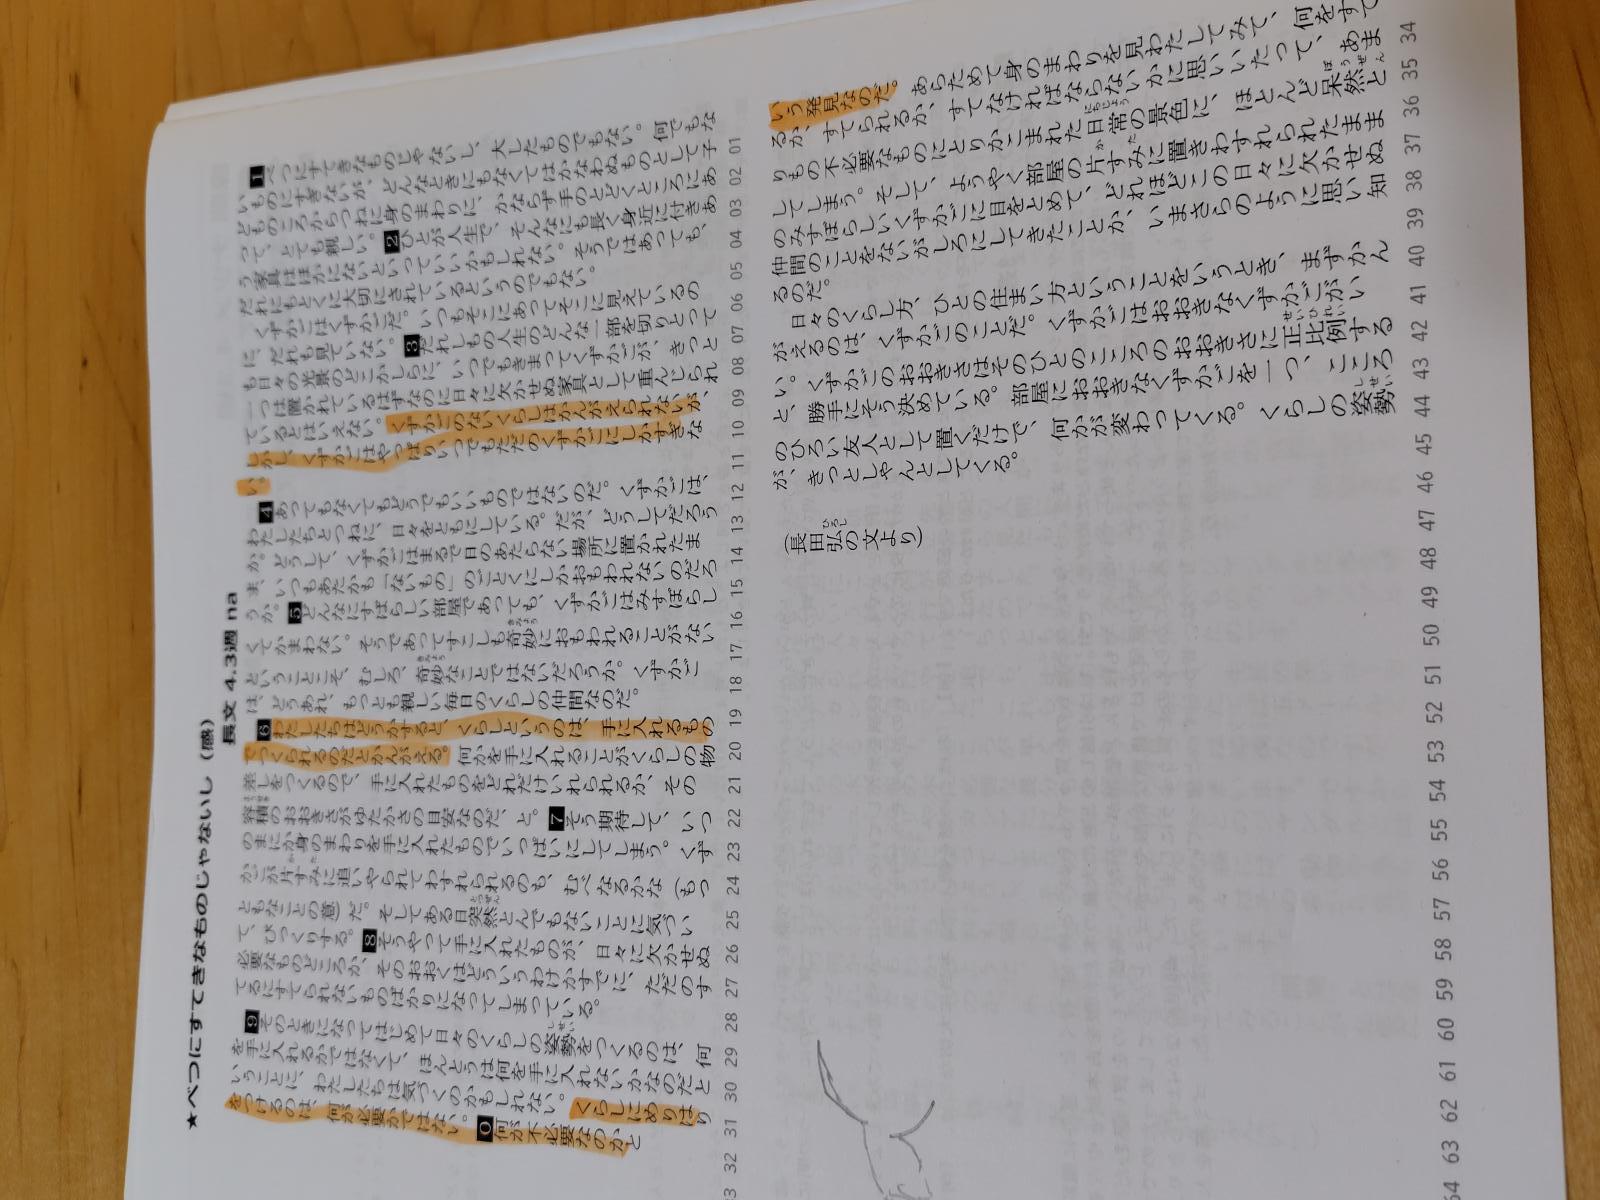 ★べつにすてきなものじゃないし（感）
長文 4.3週 na
1べつにすてきなものじゃないし、大したものでもない。何でもな
いものにすぎないが、どんなときにもなくてはかなわぬものとして子
どものころからつねに身のまわりに、かならず手のとどくところにあ
って、とても親しい。2ひとが人生で、そんなにも長く身近に付きあ
う家具はほかにないといっていいかもしれない。そうではあっても、
だれにもとくに大切にされているというのでもない。
くずかごはくずかごだ。いつもそこにあってそこに見えているの
に、だれも見ていない。3だれしもの人生のどんな一部を切りとって
も日々の光景のどこかしらに、いつでもきまってくずかごが、きっと
一つは置かれているはずなのに日々に欠かせぬ家具として重んじられ
ているとはいえない。くずかごのないくらしはかんがえられないが、
しかし、くずかごはやっぱりいつでもただのくずかごにしかすぎな
い。
4あってもなくてもどうでもいいものではないのだ。くずかごは、
わたしたちとつねに、日々をともにしている。だが、どうしてだろう
か。どうして、くずかごはまるで日のあたらない場所に置かれたま
ま、いつもあたかも「ないもの」のごとくにしかおもわれないのだろ
うか。5どんなにすばらしい部屋であっても、くずかごはみすぼらし
くてかまわない。そうであってすこしも奇妙におもわれることがない
ということこそ、むしろ、奇妙なことではないだろうか。くずかご
は、どうあれ、もっとも親しい毎日のくらしの仲間なのだ。
6わたしたちはどうかすると、くらしというのは、手に入れるもの
でつくられるのだとかんがえる。何かを手に入れることがくらしの物
差しをつくるので、手に入れたものをどれだけいれられるか、その
容積のおおきさがゆたかさの目安なのだ、と。7そう期待して、いつ
のまにか身のまわりを手に入れたものでいっぱいにしてしまう。くず
かごが片すみに追いやられてわすれられるのも、むべなるかな（もっ
ともなことの意）だ。そしてある日突然とんでもないことに気づい
て、びっくりする。8そうやって手に入れたものが、日々に欠かせぬ
必要なものどころか、そのおおくはどういうわけかすでに、ただのす
てるにすてられないものばかりになってしまっている。
9そのときになってはじめて日々のくらしの姿勢をつくるのは、何
を手に入れるかではなくて、ほんとうは何を手に入れないかなのだと
いうことに、わたしたちは気づくのかもしれない。くらしにめりはり
をつけるのは、何が必要かではない。0何が不必要なのかと
いう発見なのだ。あらためて身のまわりを見わたしてみて、何をすて
るか、すてられるか、すてなければならないかに思いいたって、あま
りもの不必要なものにとりかこまれた日常の景色に、ほとんど呆然と
してしまう。そして、ようやく部屋の片すみに置きわすれられたまま
のみすぼらしいくずかごに目をとめて、どれほどこの日々に欠かせぬ
仲間のことをないがしろにしてきたことか、いまさらのように思い知
るのだ。
日々のくらし方、ひとの住まい方ということをいうとき、まずかん
がえるのは、くずかごのことだ。くずかごはおおきなくずかごがい
い。くずかごのおおきさはそのひとのこころのおおきさに正比例する
と、勝手にそう決めている。部屋におおきなくずかごを一つ、こころ
のひろい友人として置くだけで、何かが変わってくる。くらしの姿勢
が、きっとしゃんとしてくる。
（長田弘の文より）